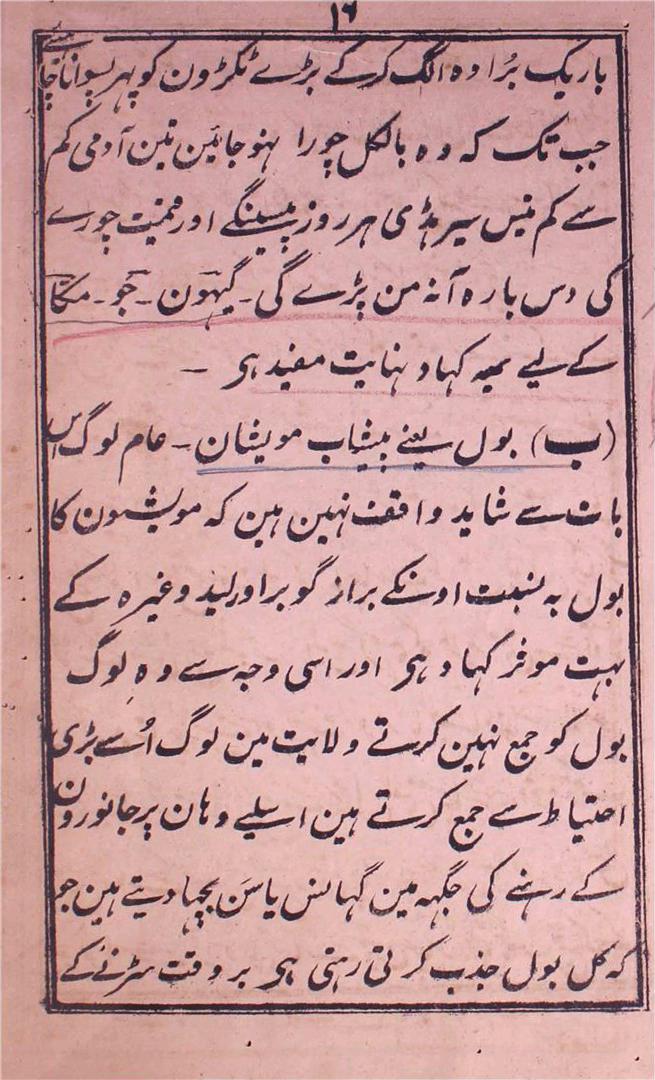 ۱۶
باریک بُراوہ الگ کرکے بڑے ٹکڑون کو پہر پسوانا چاہئے
جب تک کہ وہ بالکل چورا نہو جائین تین آدمی کم
سے کم تیس سیر ہڈی ہر روز پیسینگے اور قیمت چورے
کی دس بارہ آنہ من پڑے گی ۔ گیہون ۔ جَو ۔ مکّا
کے لیے یہہ کہاد نہایت مفید ہی ۔
(ب) بول یعنے پیشاب مویشان ۔ عام لوگ اس
بات سے شاید واقف نہین ہین کہ مویشیون کا
بول بہ نسبت اونکے براز گوبر اور لید وغیرہ کے
بہت موثر کہاد ہی اور اسی وجہ سے وہ لوگ
بول کو جمع نہین کرتے ولایت مین لوگ اُسے بڑی
احتیاط سے جمع کرتے ہین اسلیے وہان پر جانورون
کے رہنے کی جگہہ مین گہانس یا سَن بچہا دیتے ہین جو
کہ کل بول جذب کرتی رہتی ہی بروقت سڑنے کے